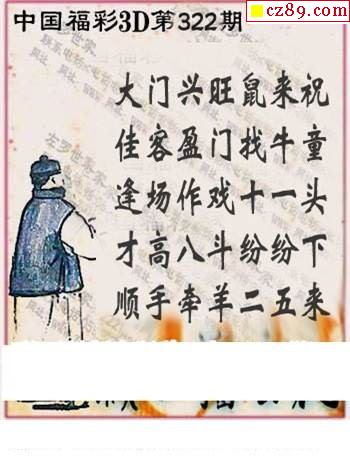 cz89.com
中国福彩3D第322期
大门兴旺鼠来祝
佳客盈门找牛童
逢场作戏十一头
才高八斗纷纷下
顺手牵羊二五来